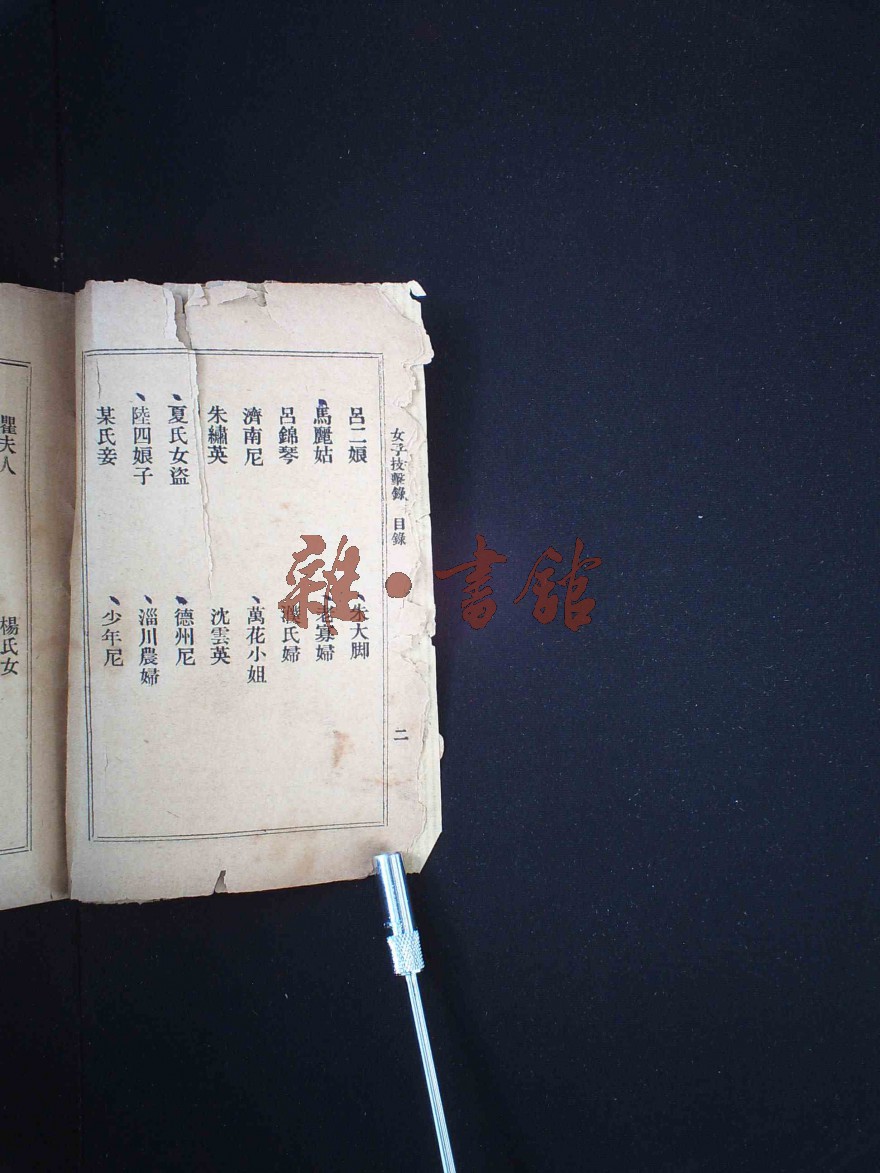 女子技擊錄 目錄
二
呂二娘
朱大脚
馬麗姑
老寡婦
呂錦琴
濮氏婦
濟南尼
萬花小姐
朱繡英
沈雲英
夏氏女盜
德州尼
陸四娘子
淄川農婦
某氏妾
少年尼
瞿夫人
楊氏女
雜·書館